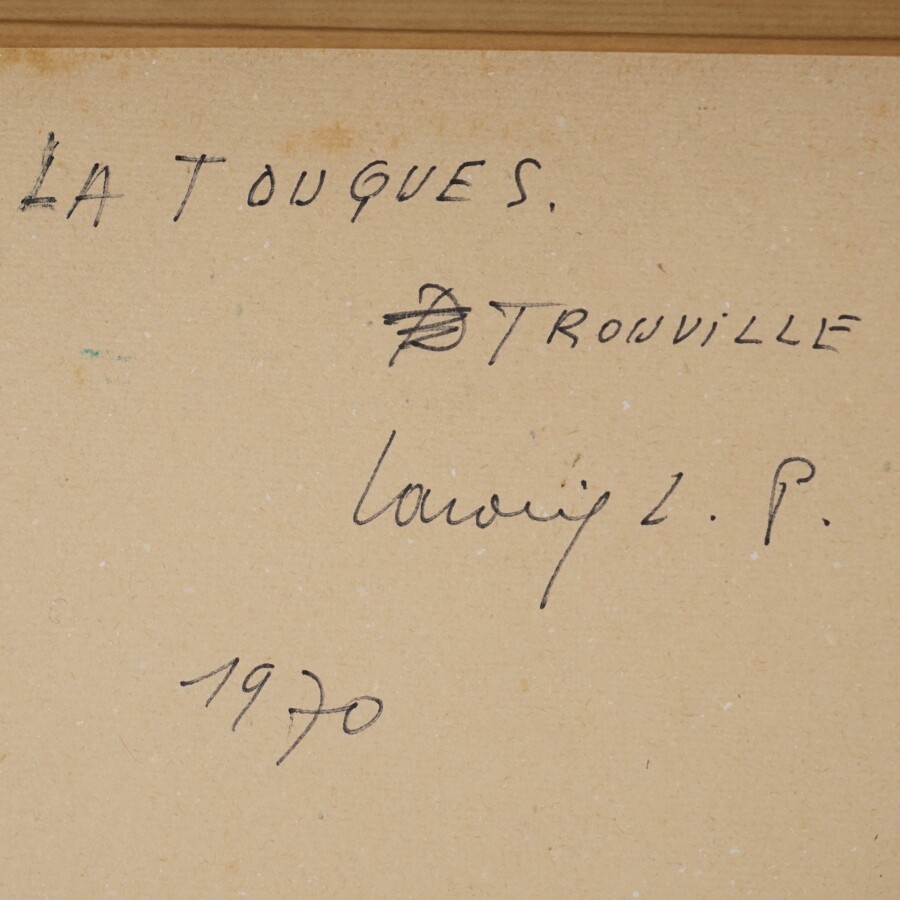 LA TOUQUES.
TROUVILLE
L. P.
1970